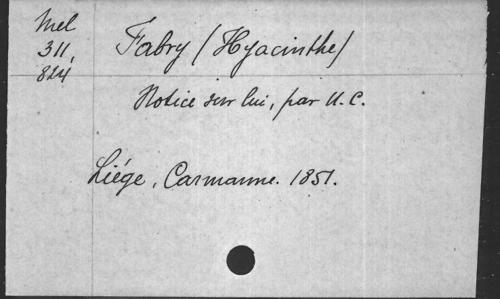 Mel
311,
824
Fabry (Hyacinthe)
Notice sur lui, par U. C.
Liége, Carmanne. 1851.